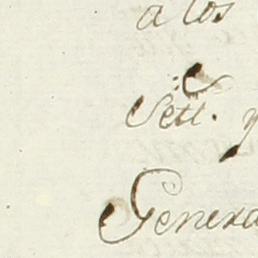 a los
Sett.^e y
Genera